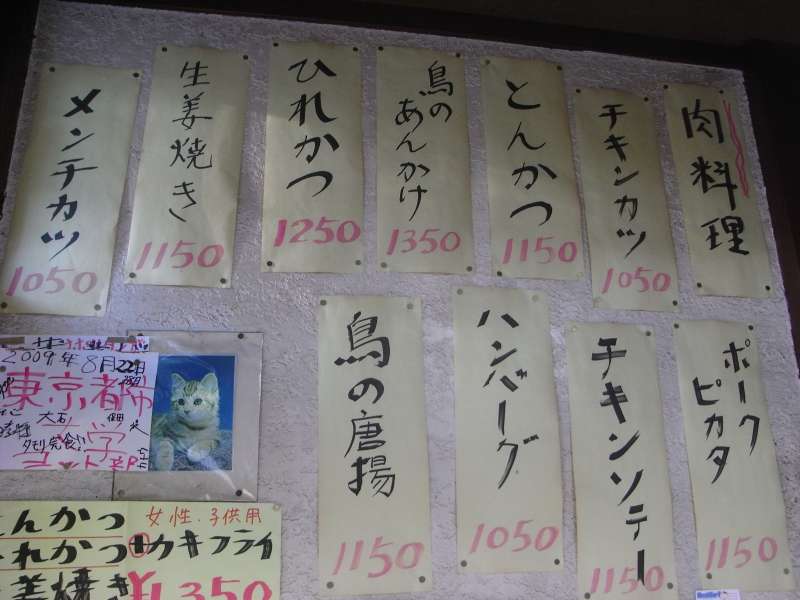 肉料理
チキンカツ
1050
とんかつ
1150
鳥の
あんかけ
1350
ひれかつ
1250
生姜焼き
1150
メンチカツ
1050
ポーク
ピカタ
1150
チキンソテー
1150
ハンバーグ
1050
鳥の唐揚
1150
2009年8月22日
東京都市
大学
大石
タモリ完食!!
とんかつ
ひれかつ
生姜焼き
女性・子供用
カキフライ
¥1350